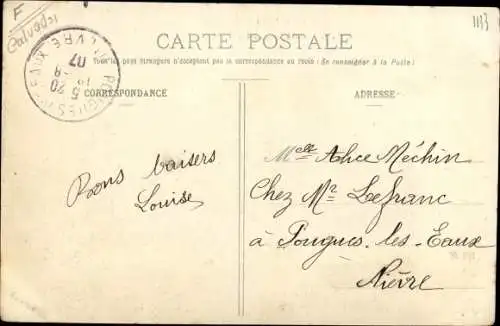 F
Calvados
1133
CARTE POSTALE
Tous les pays étrangers n'acceptent pas la correspondance au recto (Se renseigner à la Poste)
CORRESPONDANCE
ADRESSE
POUGUES-LES-EAUX NIÈVRE
5 20
07
Bons baisers
Louise
Melle Alice Méchin
Chez Mr Lefranc
à Pougues-les-Eaux
Nièvre